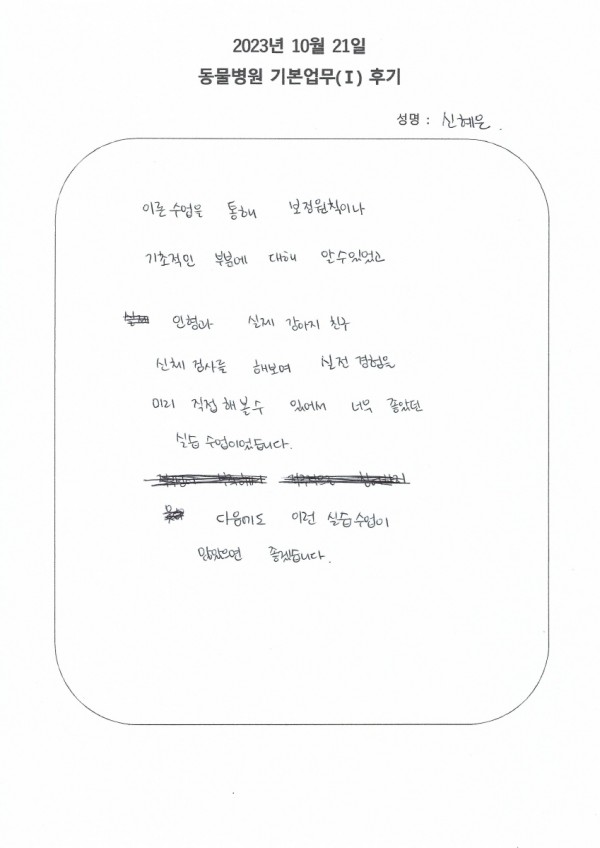 2023년 10월 21일
동물병원 기본업무(Ⅰ) 후기
성명 : 신혜은.
이론수업을 통해 보정원칙이나
기초적인 부분에 대해 알수있었고
인형과 실제 강아지 친구
신체 검사를 해보며 실전 경험을
미리 직접 해볼수 있어서 너무 좋았던
실습 수업이었습니다.
다음에도 이런 실습수업이
있었으면 좋겠습니다.